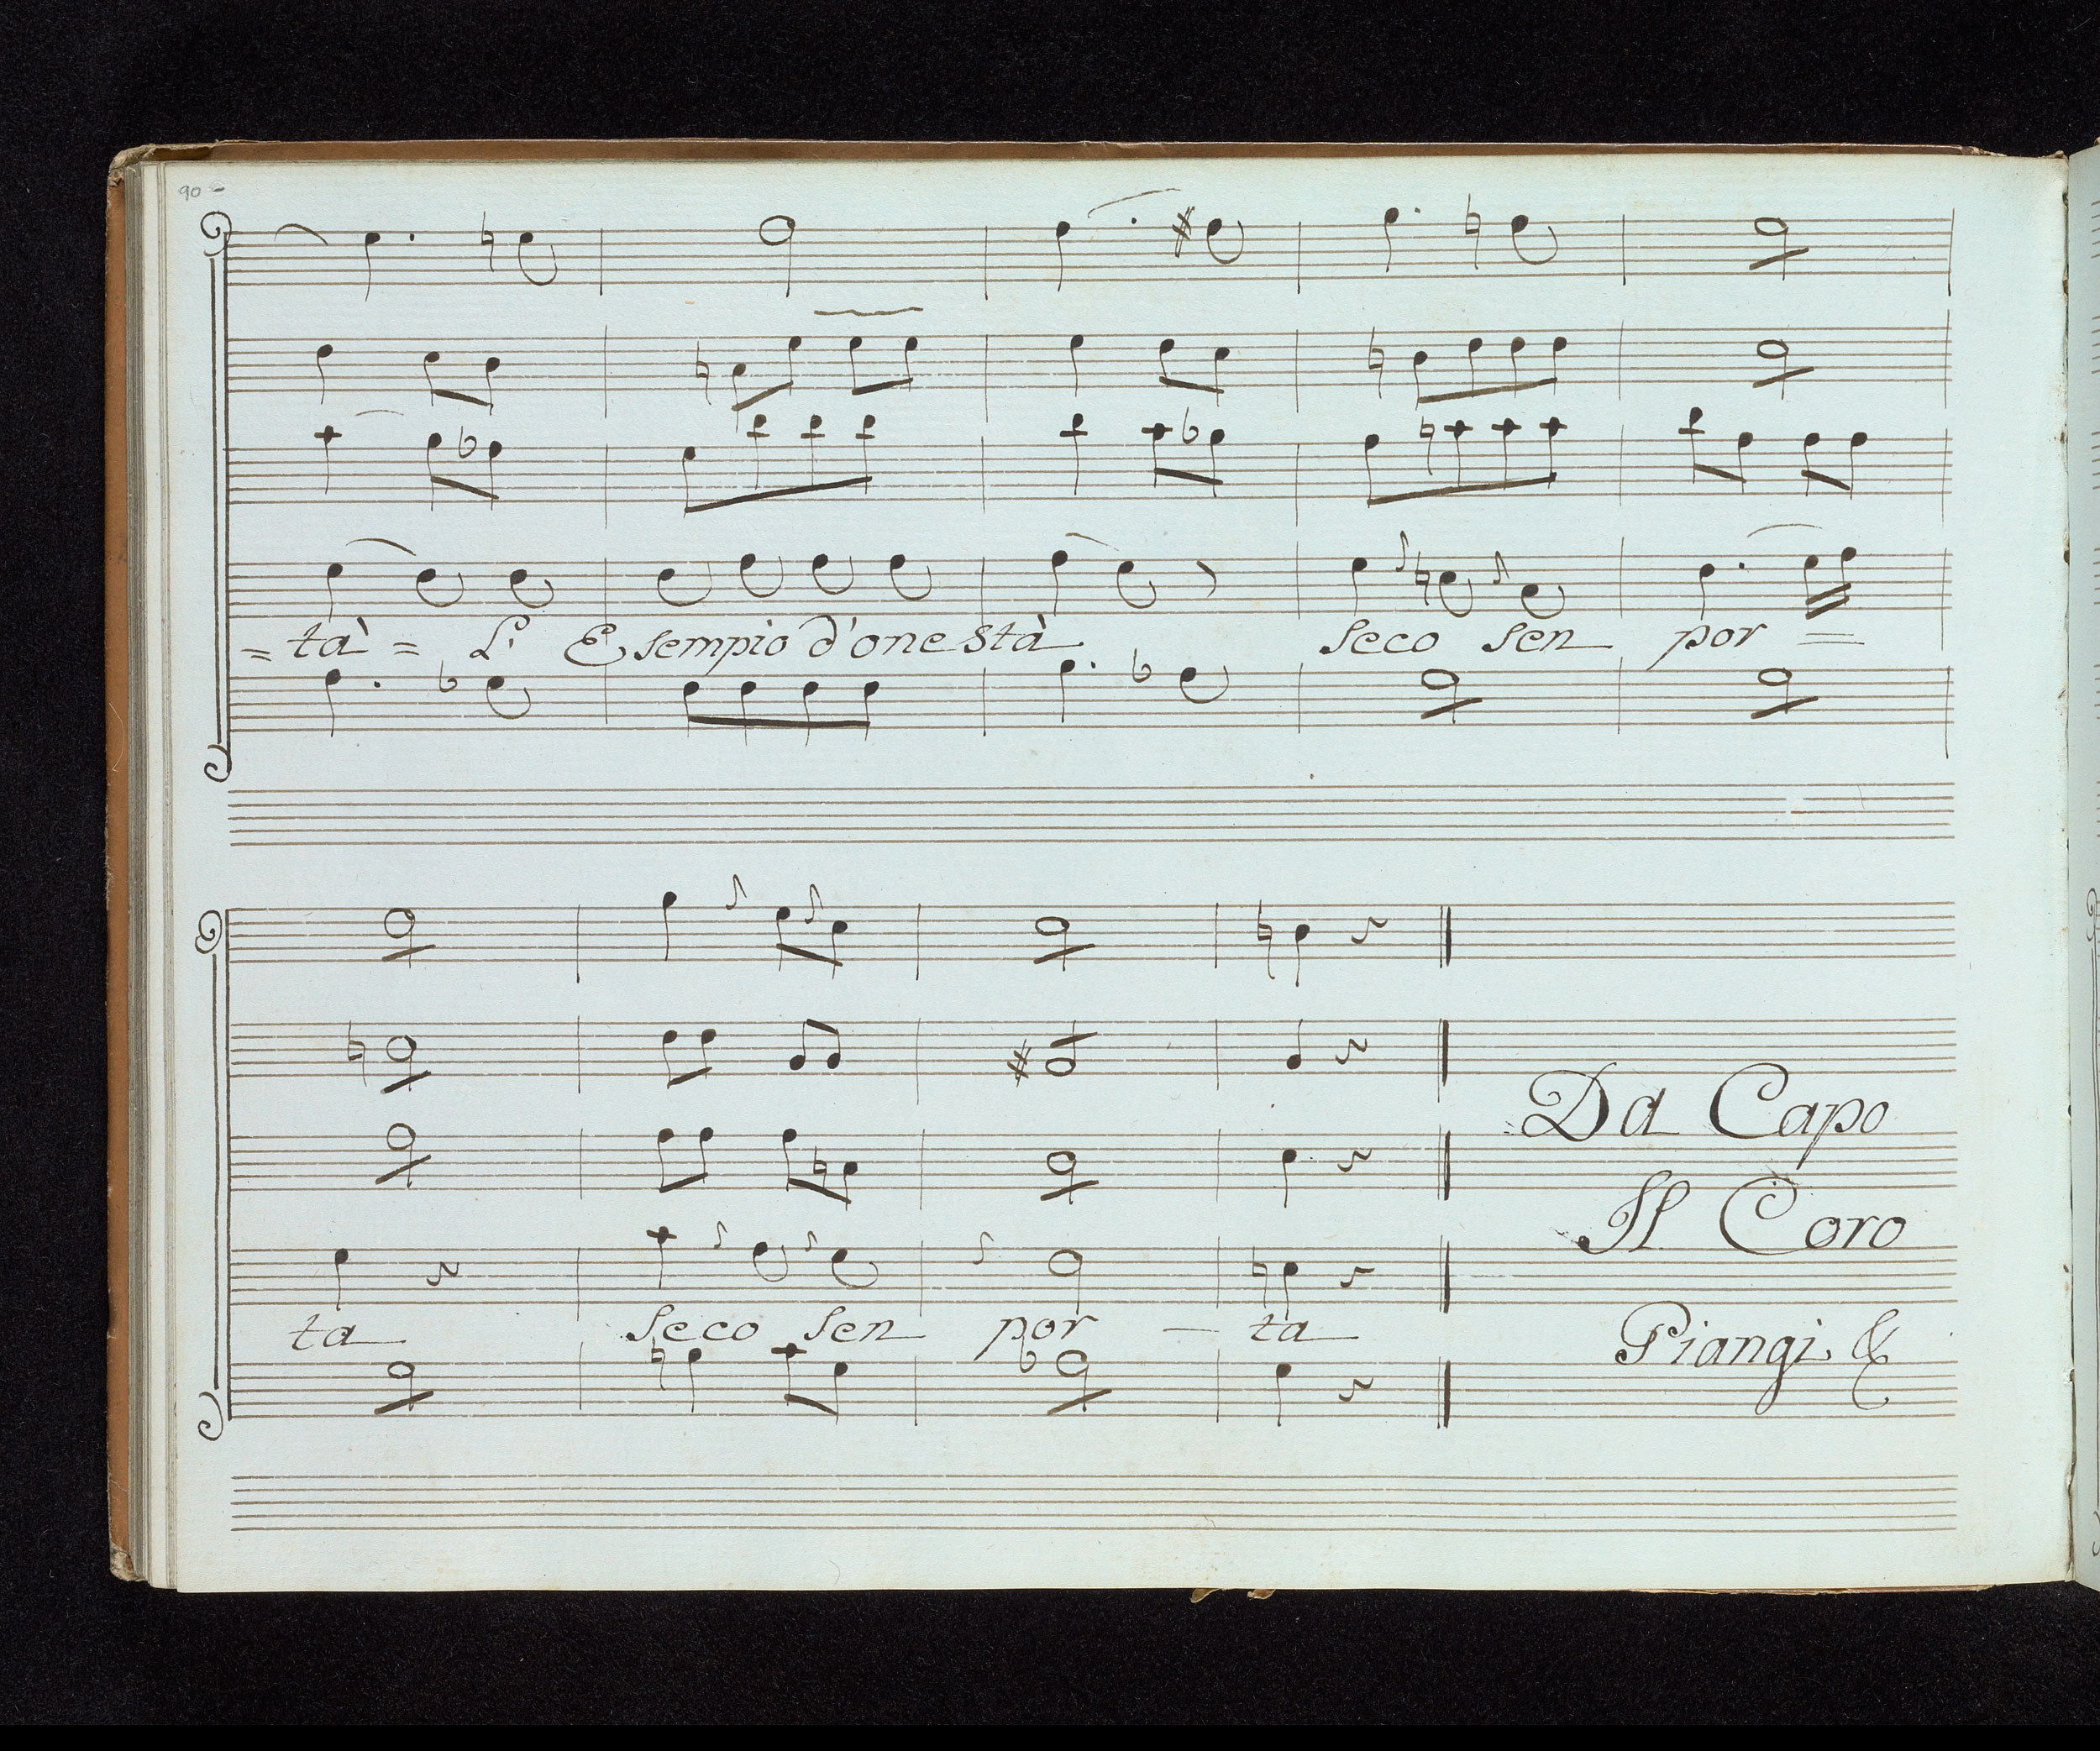 90
= tà = L' Esempio d'onestà seco sen por =
ta seco sen por — ta
Da Capo
Il Coro
Piangi &